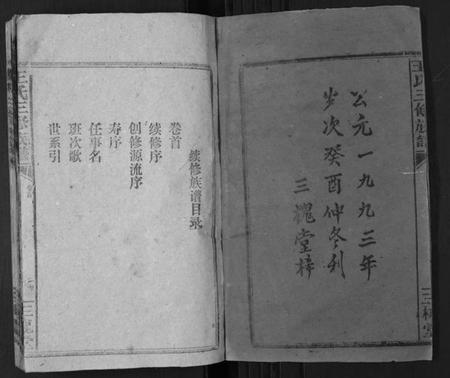 王氏三修族譜
公元一九九三年
岁次癸酉仲冬刊
三槐堂梓
三槐堂
续修族谱目录
卷首
续修序
创修源流序
寿序
任事名
班次歌
世系引